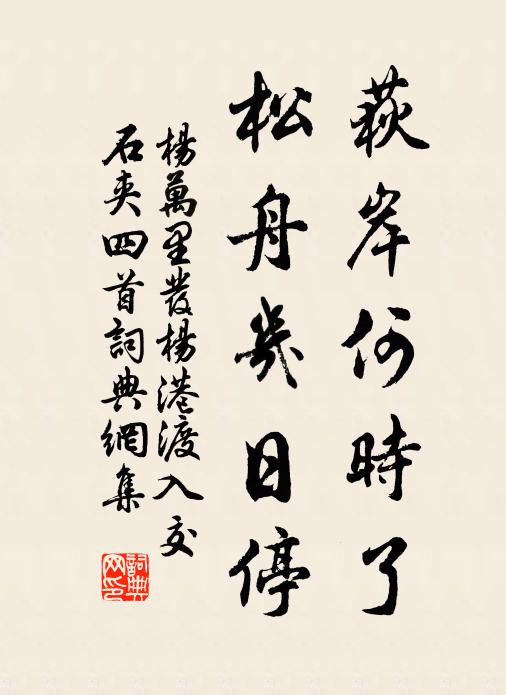 萩岸何時了
松舟幾日停
楊萬里發楊港渡入交
石夾四首詞典網集
詞典
网印